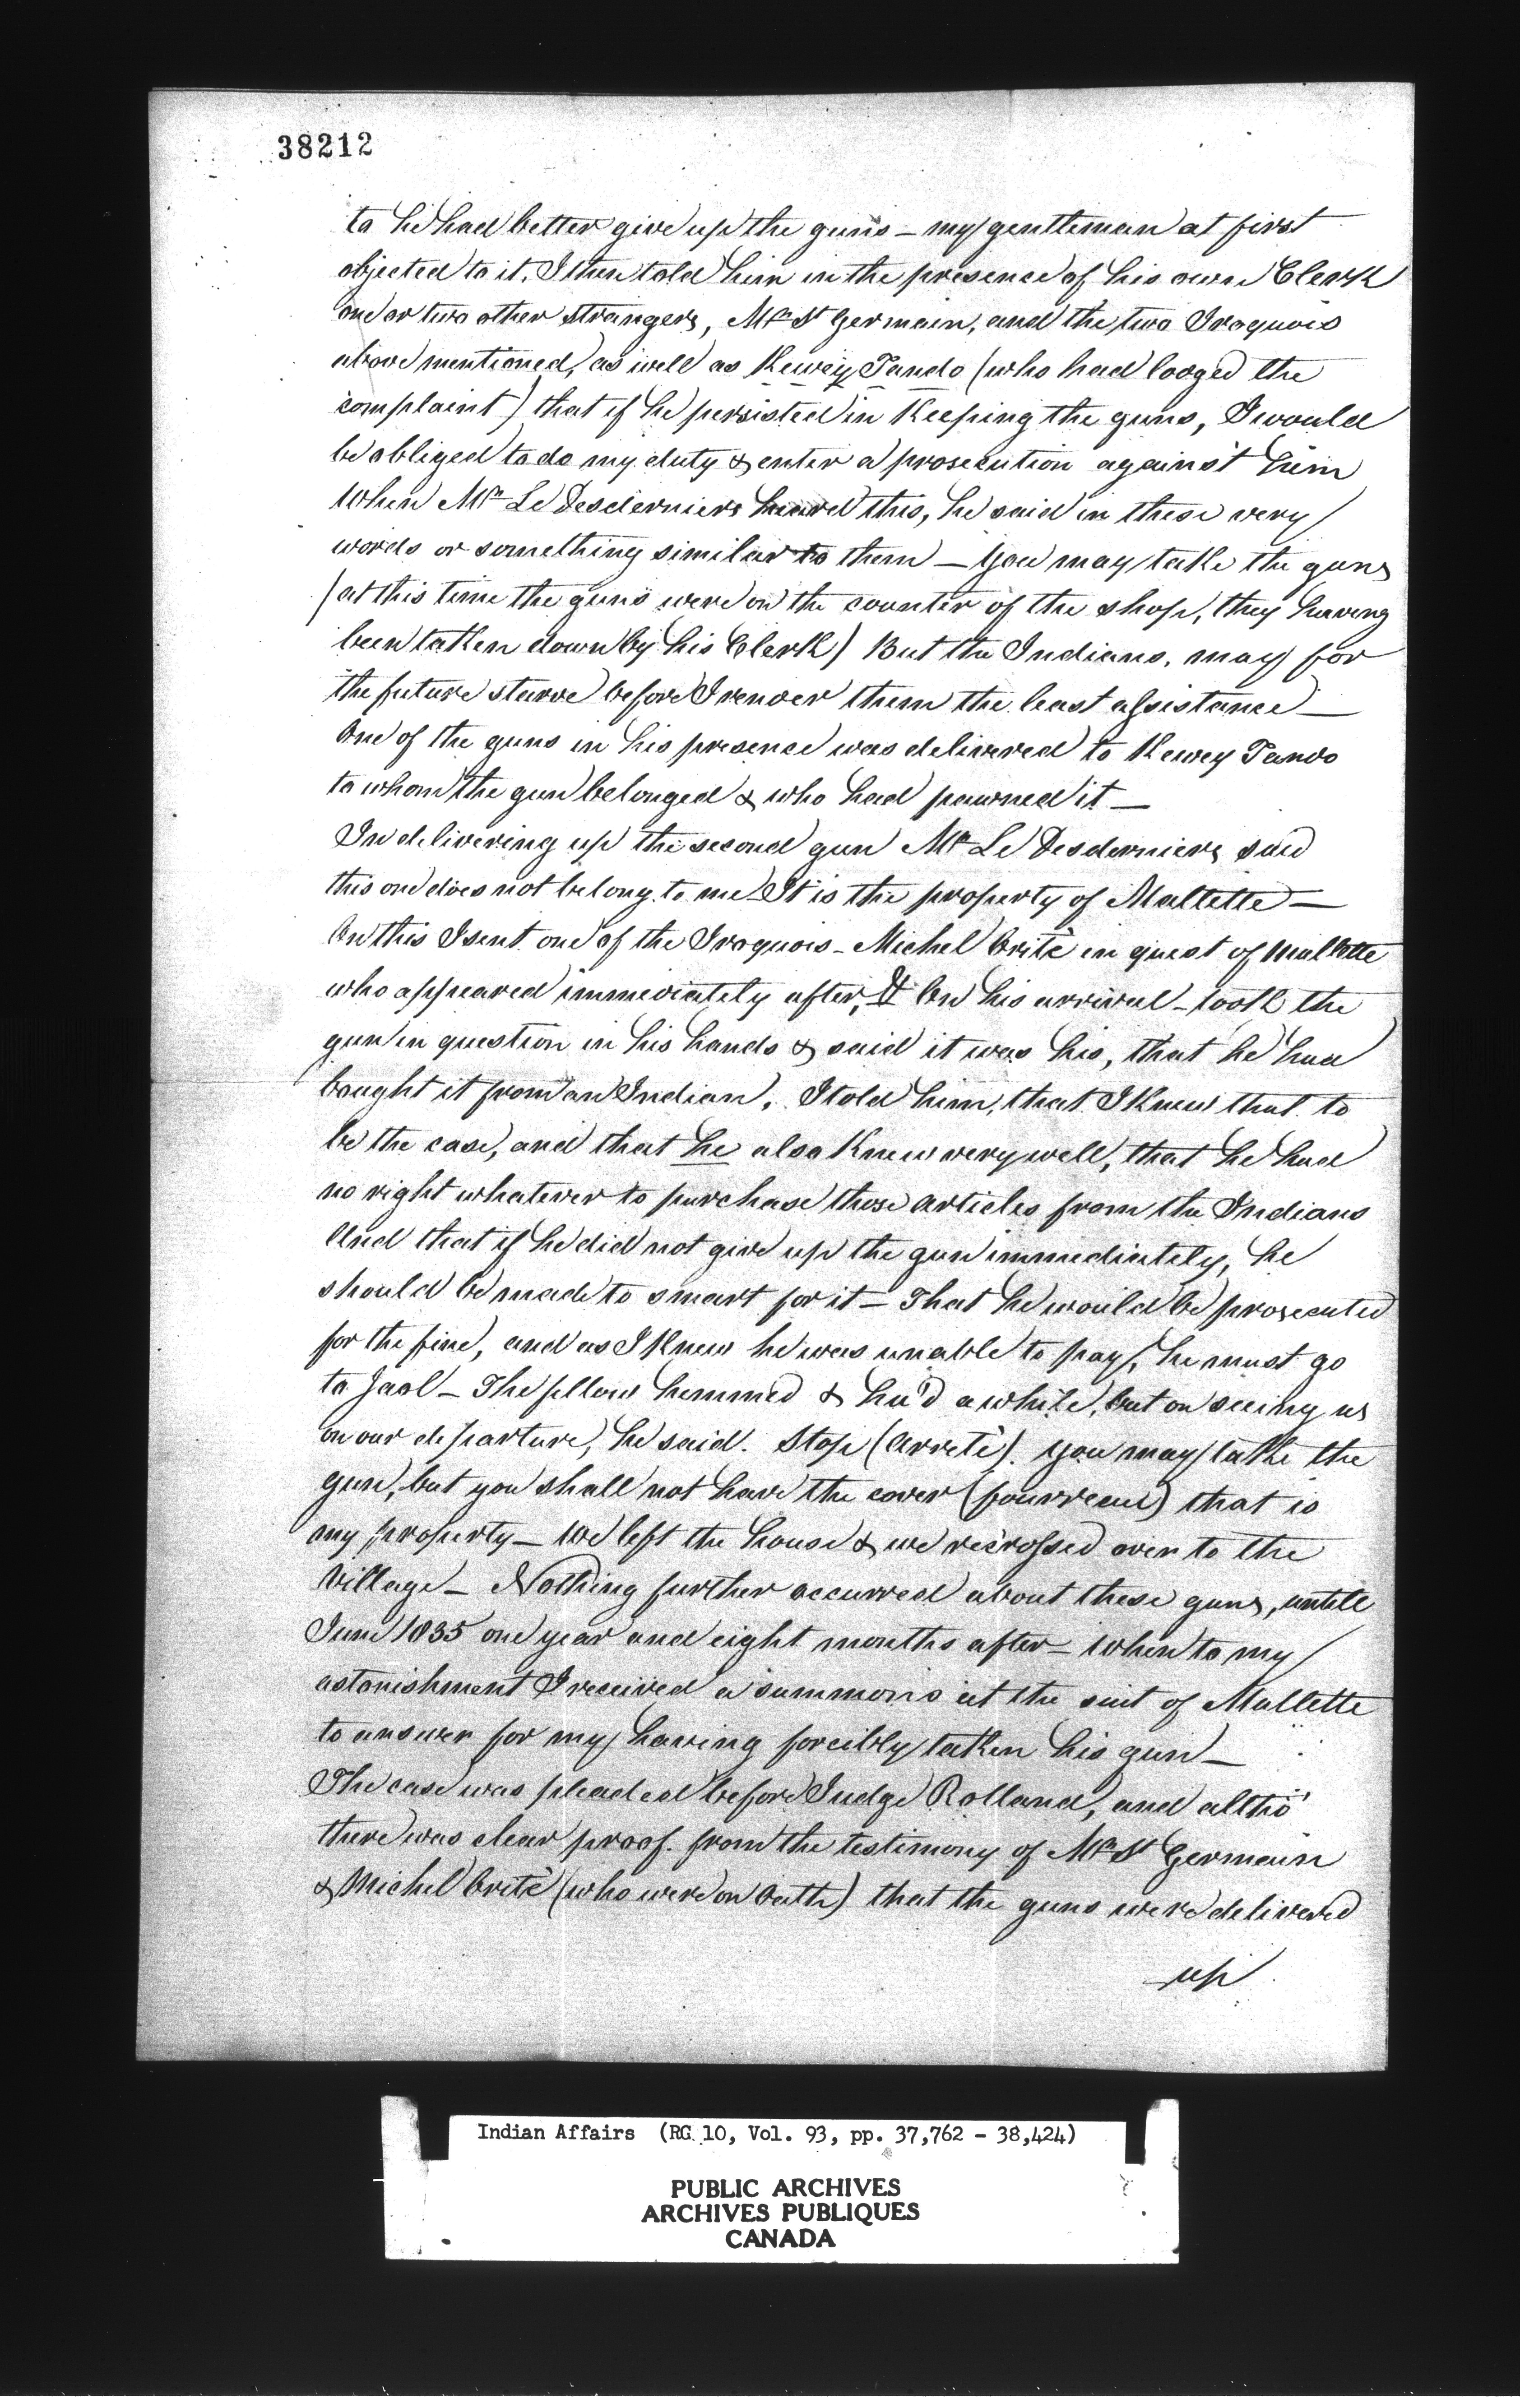 38212
to he had better give up the guns – my gentleman at first
objected to it. I then told him in the presence of his own Clerk
one or two other strangers, Mr St Germain, and the two Iroquois
above mentioned, as well as Kewey Tando (who had lodged the
complaint) that if he persisted in Keeping the guns, I would
be obliged to do my duty & enter a prosecution against him
When Mr Le Desderniers heard this, he said in these very
words or something similar to them – You may take the guns
(at this time the guns were on the counter of the shop, they having
been taken down by his Clerk) But the Indians, may for
the future starve before I render them the least assistance –
One of the guns in his presence was delivered to Kewey Tando
to whom the gun belonged & who had pawned it –
In delivering up the second gun Mr Le Desderniers said
this one does not belong to me It is the property of Mallette –
On this I sent one of the Iroquois – Michel Orité in quest of Mallette
who appeared immediately after, & On his arrival – took the
gun in question in his hands & said it was his, that he had
bought it from an Indian. I told him, that I Knew that to
be the case, and that he also Knew very well, that he had
no right whatever to purchase those articles from the Indians
And that if he did not give up the gun immediately, he
should be made to smart for it – That he would be prosecuted
for the fine, and as I Knew he was unable to pay, he must go
to Jaol – The fellow hemmed & ha'd a while, but on seeing us
on our departure, he said. Stop (Arreté). You may take the
gun, but you shall not have the cover (fourreau) that is
my property – We left the house & we recrossed over to the
Village – Nothing further occurred about these guns, untill
June 1835 one year and eight months after – When to my
astonishment I received a summons at the suit of Mallette
to answer for my having forcibly taken his gun –
The case was pleaded before Judge Rolland, and altho'
there was clear proof. from the testimony of Mr St Germain
& Michel Orité (who were on Oath) that the guns were delivered
up
Indian Affairs (RG 10, Vol. 93, pp. 37,762 - 38,424)
PUBLIC ARCHIVES
ARCHIVES PUBLIQUES
CANADA